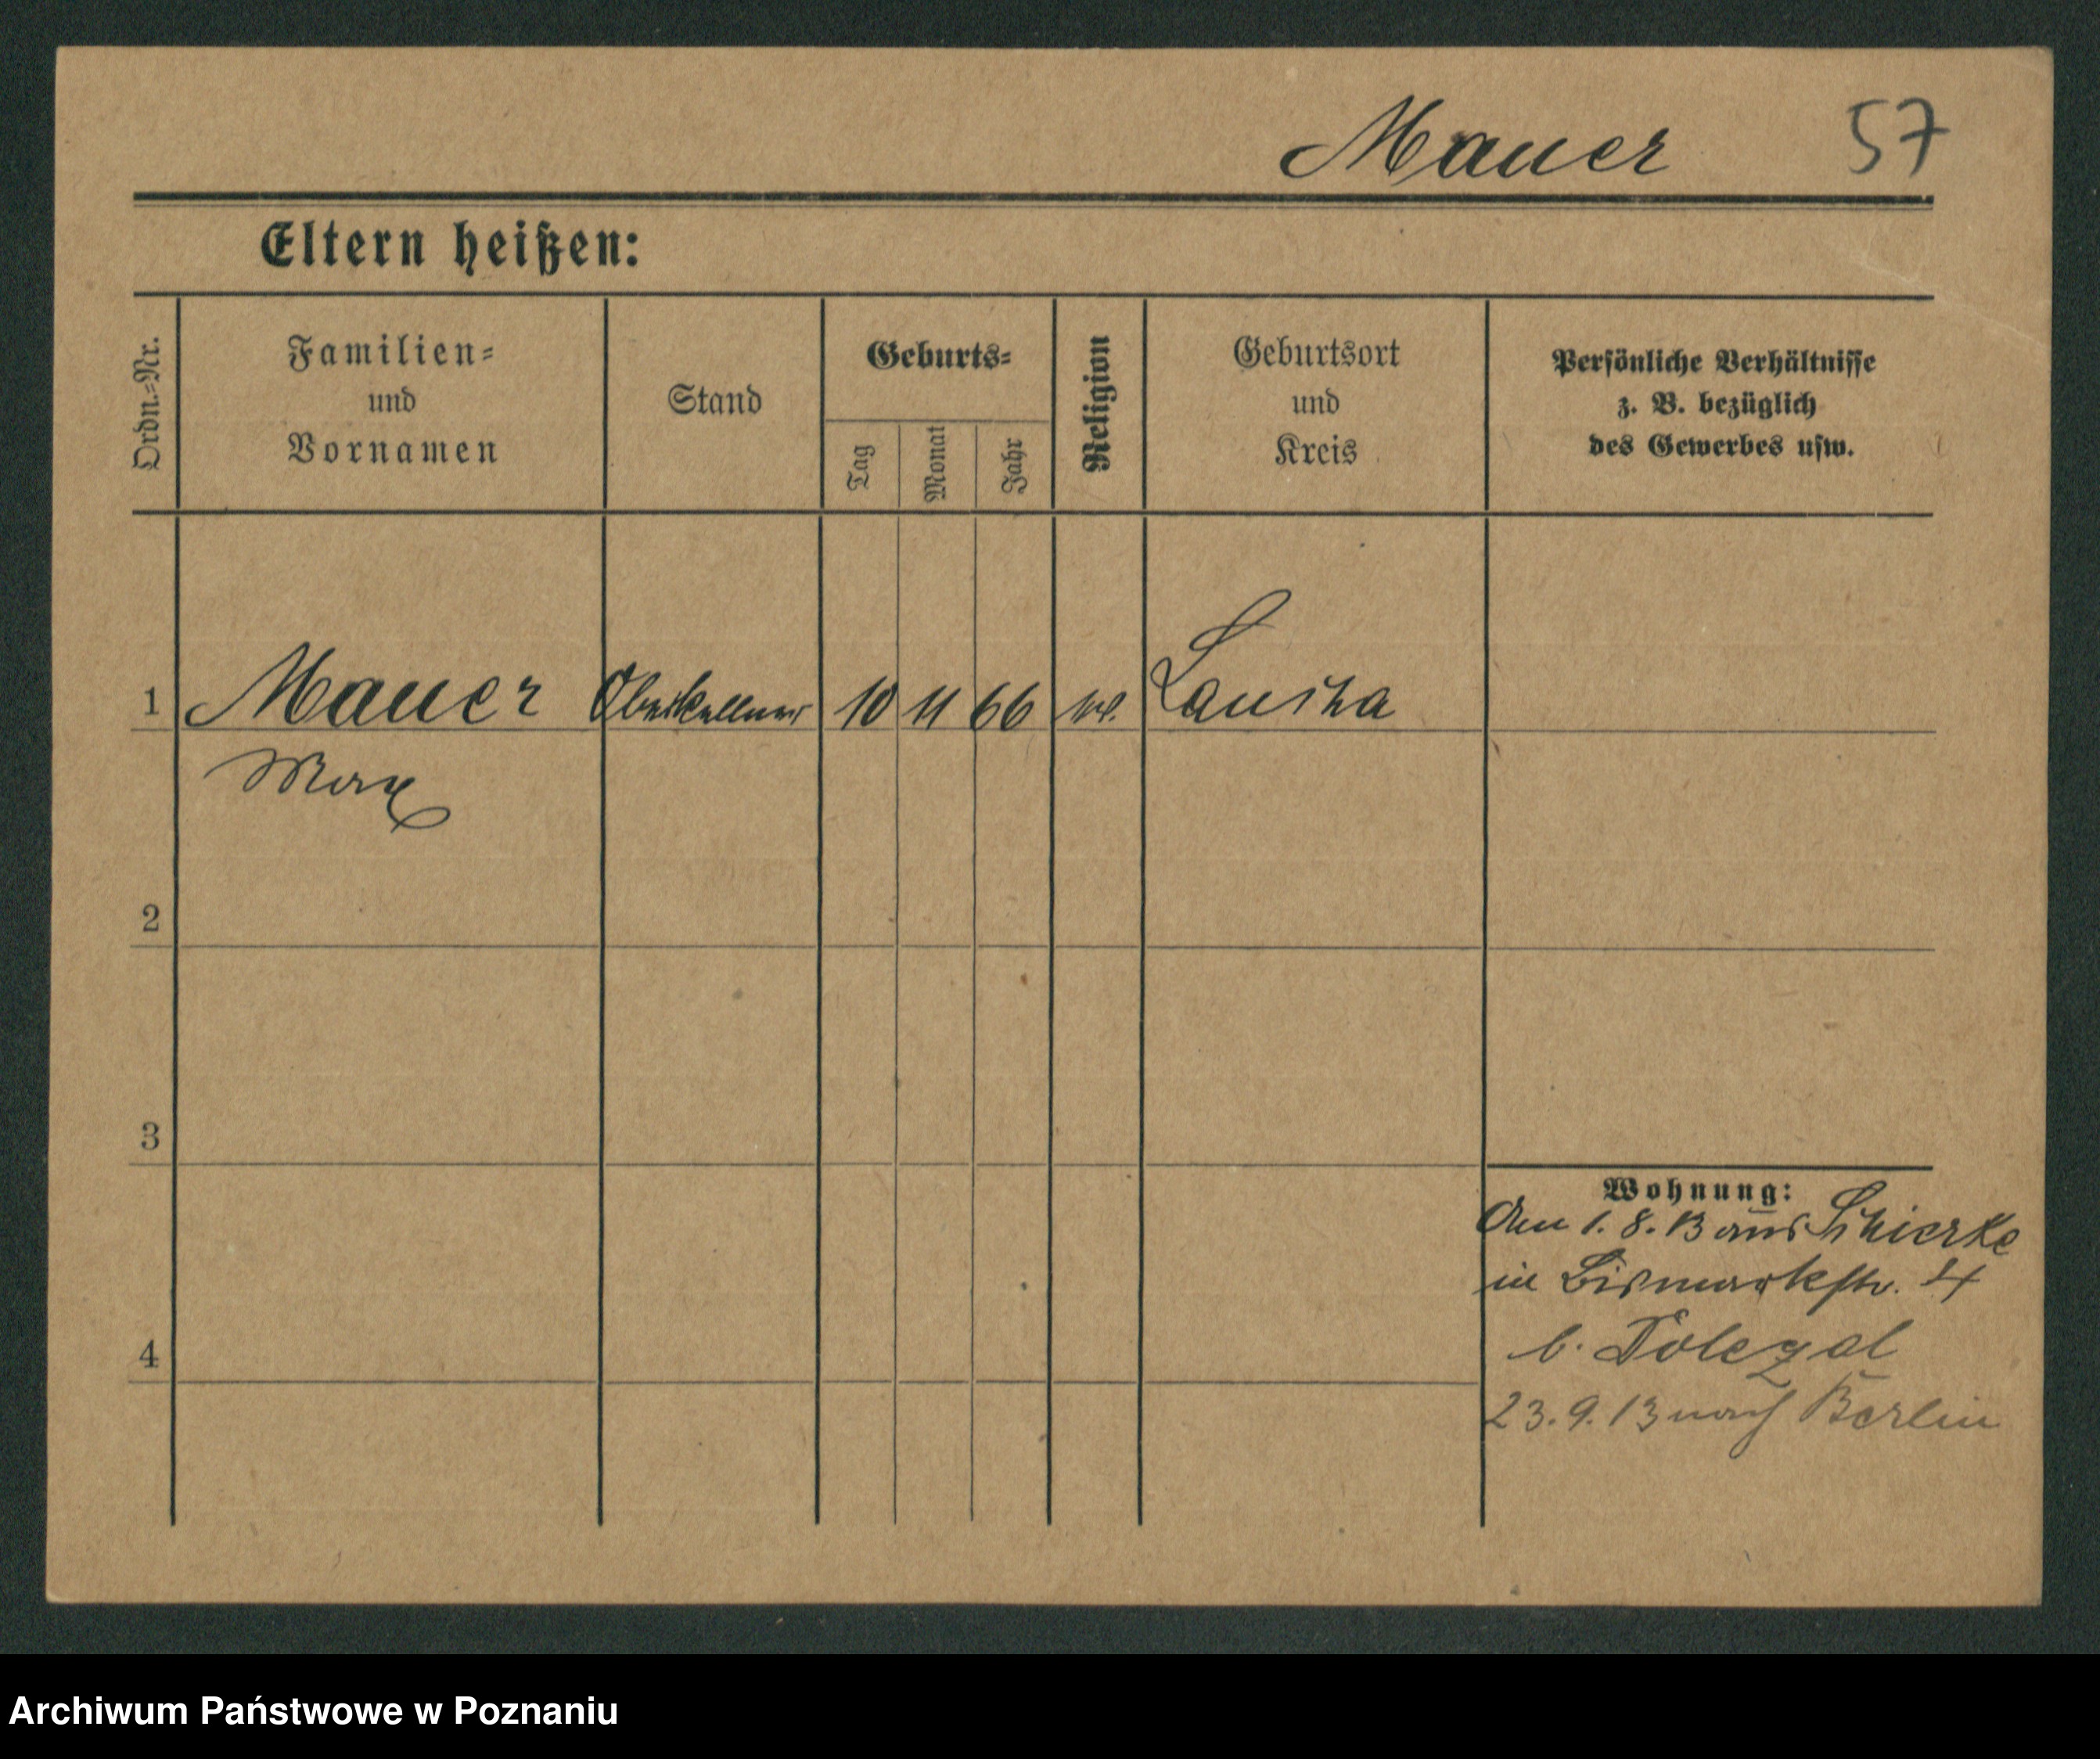 Mauer 57
Eltern heißen:
Ordn.-Nr.
Familien-
und
Vornamen
Stand
Geburts-
Tag
Monat
Jahr
Religion
Geburtsort
und
Kreis
Persönliche Verhältnisse
z. B. bezüglich
des Gewerbes usw.
1 Mauer Oberkellner 10 11 66 Lauscha
Max
2
3
4
Wohnung:
Am 1. 8. 13 aus Schierke
in Bismarkstr. 4
b. Dolezal
23. 9. 13 nach Berlin
Archiwum Państwowe w Poznaniu